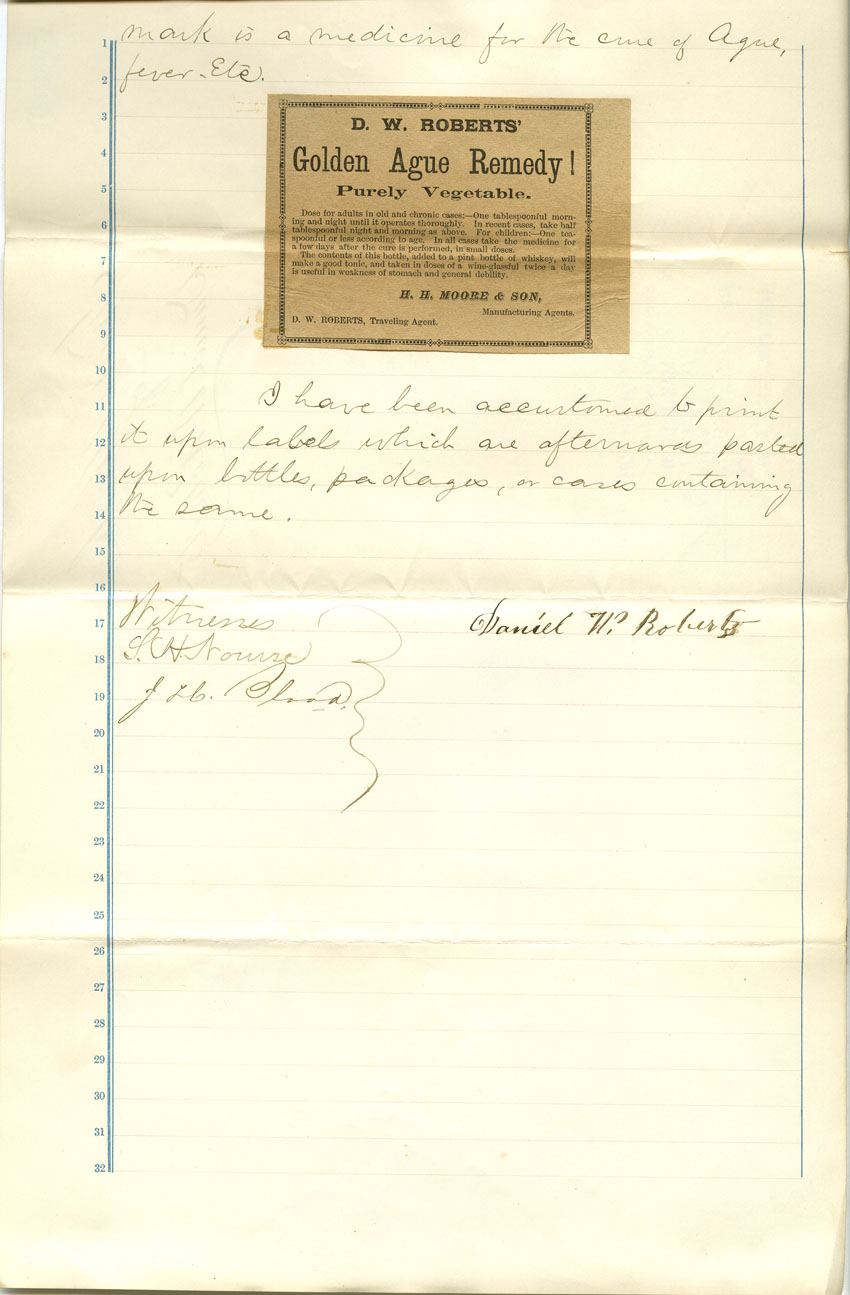 mark is a medicine for the cure of Ague,
fever. Etc.
D. W. ROBERTS'
Golden Ague Remedy!
Purely Vegetable.
Dose for adults in old and chronic cases:—One tablespoonful morn-
ing and night until it operates thoroughly. In recent cases, take half
tablespoonful night and morning as above. For children:—One tea-
spoonful or less according to age. In all cases take the medicine for
a few days after the cure is performed, in small doses.
The contents of this bottle, added to a pint bottle of whiskey, will
make a good tonic, and taken in doses of a wine-glassful twice a day
is useful in weakness of stomach and general debility.
H. H. MOORE & SON,
Manufacturing Agents.
D. W. ROBERTS, Traveling Agent.
I have been accustomed to print
it upon labels which are afterwards pasted
upon bottles, packages, or cases containing
the same.
Witnesses
Daniel W. Roberts
S. H. Nourse
Blood.
1
2
3
4
5
6
7
8
9
10
11
12
13
14
15
16
17
18
19
20
21
22
23
24
25
26
27
28
29
30
31
32